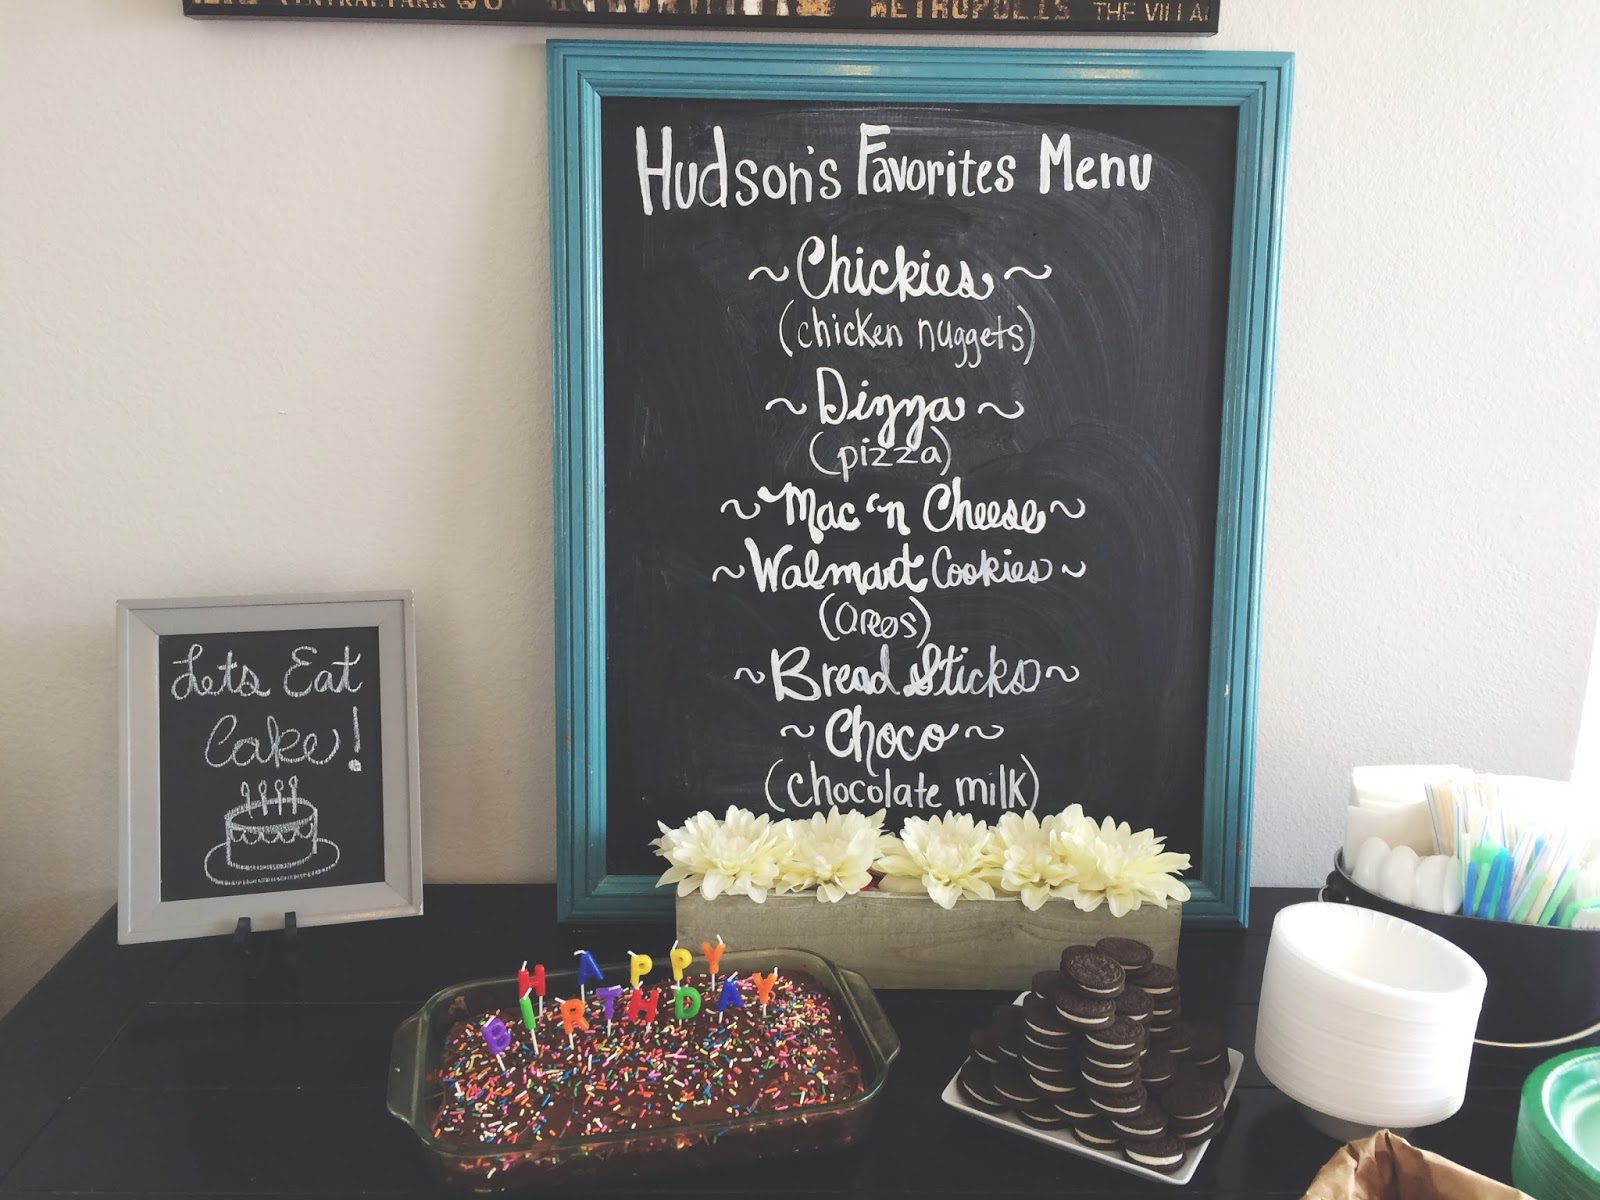 CENTRAL PARK
METROPOLIS THE VILLA
Hudson's Favorites Menu
~Chickies~
(chicken nuggets)
~Dizza~
(pizza)
~Mac 'n Cheese~
~Walmart Cookies~
(Oreos)
~Bread Sticks~
~Choco~
(chocolate milk)
Lets Eat
Cake!
HAPPY
BIRTHDAY